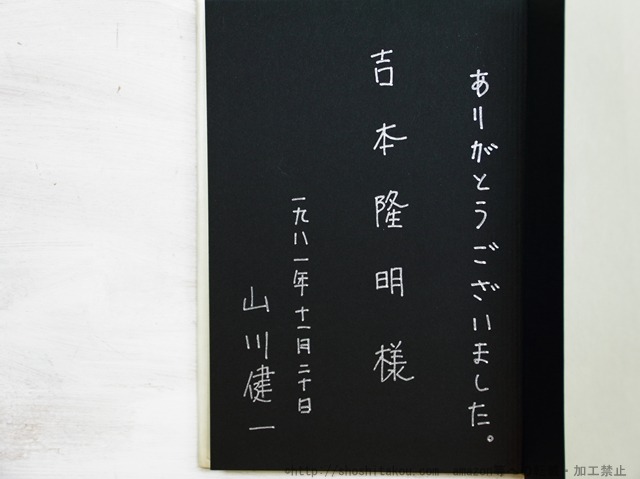 ありがとうございました。
吉本隆明様
一九八一年十一月二十日
山川健一
©http://shoshitakou.com
加工禁止